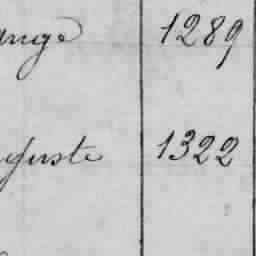 ange 1289
guste 1322